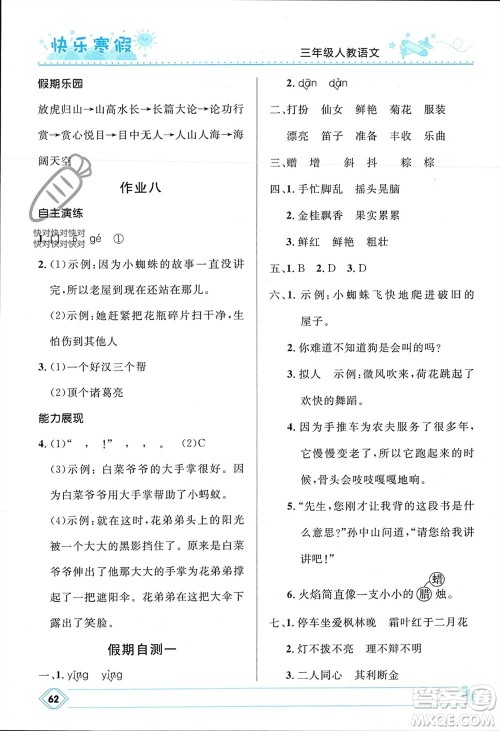 快乐寒假
三年级人教语文
假期乐园
放虎归山→山高水长→长篇大论→论功行
赏→赏心悦目→目中无人→人山人海→海
阔天空
作业八
自主演练
快对快对快对
快对快对快对
1. gé ①
2.(1)示例：因为小蜘蛛的故事一直没讲
完，所以老屋到现在还站在那儿。
(2)示例：她赶紧把花瓶碎片扫干净，
生怕伤到其他人
3.(1)一个好汉三个帮
(2)顶个诸葛亮
能力展现
4.(1)“ ， ，！” (2)C
(3)示例：白菜爷爷的大手掌很厉害。
白菜爷爷的大手掌保护了小蚂蚁。
(4)示例：花弟弟头上的阳光
被一个大大的黑影挡住了。原来是白菜
爷爷伸出了大大的手掌，给花弟弟做
起了遮阳伞。花弟弟仰起头，对白菜爷爷
露出了笑脸。
假期自测一
一、1. yīng yǐng
62
2. dān dàn
二、打扮 仙女 鲜艳 菊花 服装
漂亮 笛子 准备 丰收 欢唱
三、赠 增 斜 抖 棕 粽
四、1. 手忙脚乱 摇头晃脑
2. 金桂飘香 果实累累
3. 鲜红 鲜艳 粗壮
五、1. B 2. D 3. D
六、1. 示例：小蜘蛛飞快地爬进破旧的
屋子。
2. 你难道不知道狗是会叫的吗？
3. 拟人 示例：微风吹来，荷花跳起了
欢快的舞蹈。
4. 因为手推车为农夫服务了很多年，它
慢慢变老了，所以它的行动变得很缓
慢，骨头会吱吱嘎嘎地响。
5.“先生，您让我背的这段书是什
么意思？”孙中山问道，“请您给我讲
讲吧！”
6. 火焰简直像一支小小的腊烛。
蜡
七、1. 停车坐爱枫林晚 霜叶红于二月花
2. 灯不拨不亮 理不辩不明
3. 二人同心 其利断金